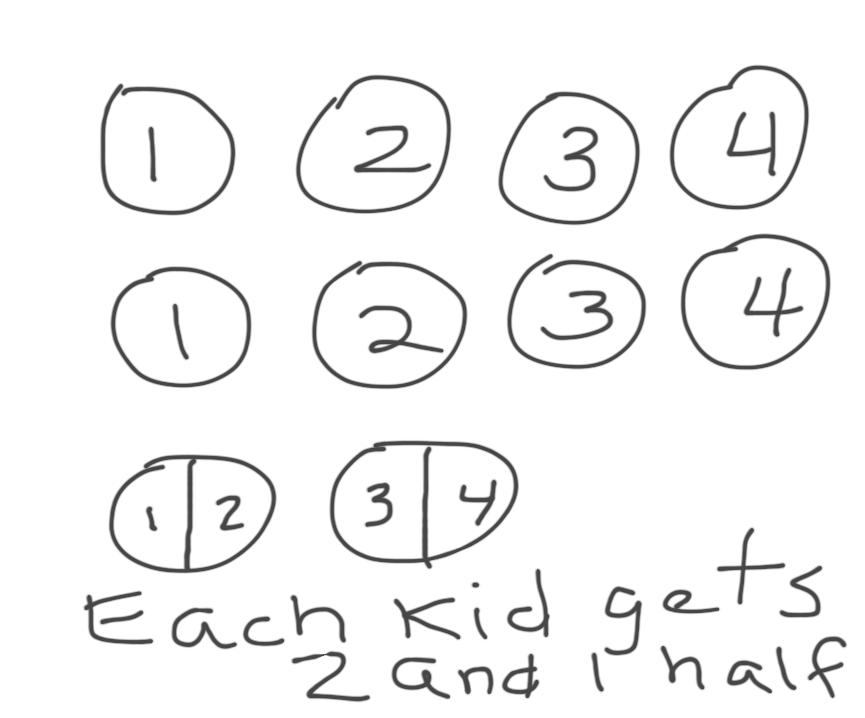 1 2 3 4
1 2 3 4
1 2 3 4
Each kid gets
2 and 1 half